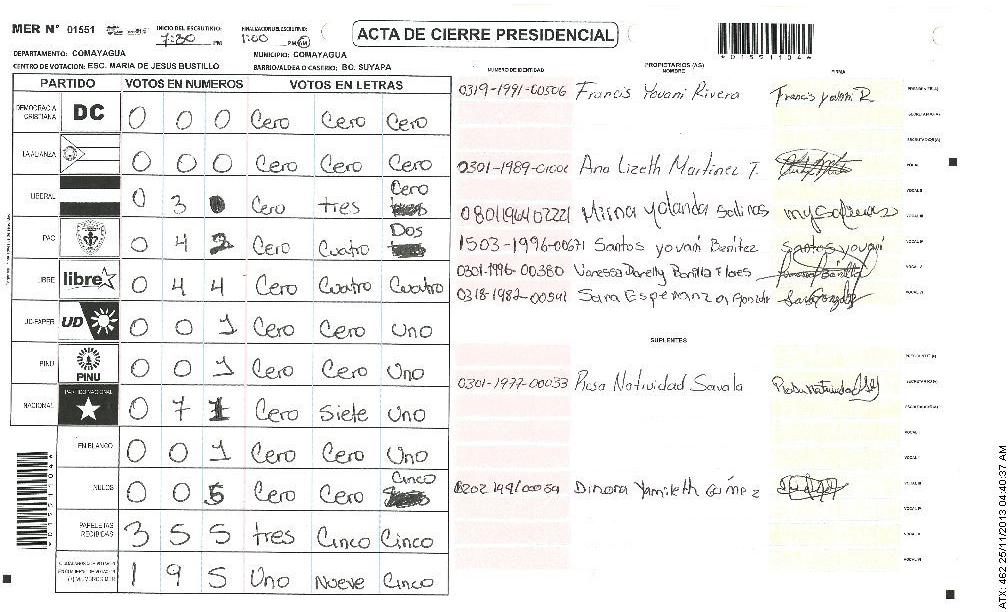 MER N° 01551
INICIO DEL ESCRUTINIO: 7:30 PM
FINALIZACION DEL ESCRUTINIO: 1:00 PM AM
ACTA DE CIERRE PRESIDENCIAL
*01551104*
DEPARTAMENTO: COMAYAGUA
MUNICIPIO: COMAYAGUA
CENTRO DE VOTACIÓN: ESC. MARIA DE JESUS BUSTILLO
BARRIO/ALDEA O CASERIO: BO. SUYAPA
PARTIDO VOTOS EN NUMEROS VOTOS EN LETRAS
NUMERO DE IDENTIDAD PROPIETARIOS (AS) NOMBRE FIRMA
DEMOCRACIA CRISTIANA DC 0 0 0 Cero Cero Cero
LA ALIANZA 0 0 0 Cero Cero Cero
LIBERAL 0 3 0 Cero tres Cero
PAC 0 4 2 Cero Cuatro Dos
LIBRE libre 0 4 4 Cero Cuatro Cuatro
UD-FAPER UD 0 0 1 Cero Cero Uno
PINU PINU 0 0 1 Cero Cero Uno
NACIONAL PARTIDO NACIONAL 0 7 1 Cero Siete Uno
EN BLANCO 0 0 1 Cero Cero Uno
NULOS 0 0 5 Cero Cero Cinco
PAPELETAS RECIBIDAS 3 5 5 tres Cinco Cinco
1 9 5 Uno Nueve Cinco
0319-1991-00506 Francis Yovani Rivera Francis Yovani R.
PRESIDENTE (A)
SECRETARIO (A)
ESCRUTADOR (A)
Ana Lizeth Martinez T.
VOCAL I
VOCAL II
0801196402221 Mirna Yolanda Salinas
VOCAL III
1503-1996-00671 Santos yovani Benitez Santos yovani
VOCAL IV
0301-1996-00380 Vanessa
VOCAL V
0318-1982-00541 Sara
VOCAL VI
SUPLENTES
PRESIDENTE (A)
0301-1977-00033 Rosa Natividad Savala
SECRETARIO (A)
ESCRUTADOR (A)
VOCAL I
VOCAL II
Dinora Yamileth Gómez
VOCAL III
VOCAL IV
VOCAL V
VOCAL VI
*01551104*
ATX: 462 25/11/2013 04:40:37 AM